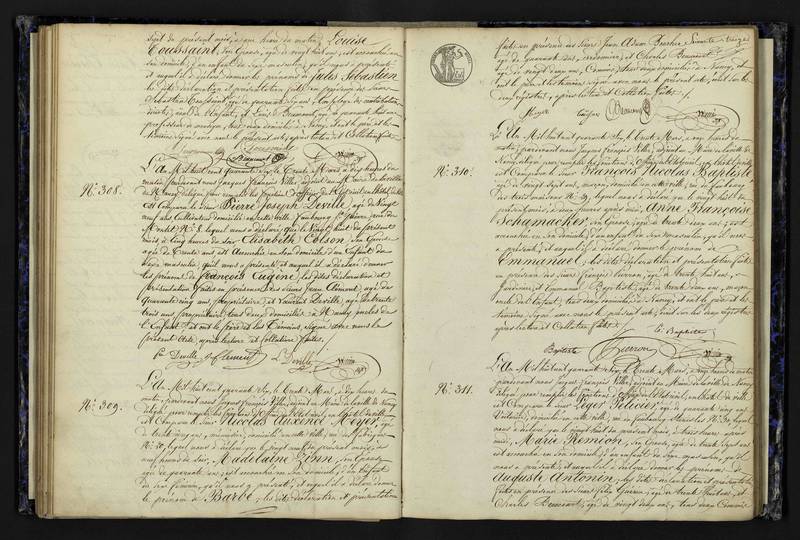 sept du présent mois, à une heure du matin, Louise
Toussaint, son épouse, âgée de vingt huit ans, est accouchée en
son domicile, d'un enfant du sexe masculin, qu'il nous a présenté
et auquel il a déclaré donner les prénoms de Jules Sébastien
les dites déclaration et présentation faites en présence des sieurs
Sébastien Toussaint, âgé de
de l'enfant, et Louis Beaumont, âgé de quarante
professeur de musique, tous deux domiciliés à Nancy, et ont le père et les
témoins signé avec nous le présent acte, après lecture et collation faites
Toussaint
Beaumont
N.° 308.
L'An Mil huit cent quarante six, le Trente Mars à dix heures du
matin, pardevant nous Jacques François Villes, adjoint au Maire de la ville
de Nancy, délégué pour remplir les fonctions d'officier de l'État civil
est Comparu le sieur Pierre Joseph Deville, âgé de Vingt
neuf ans Cultivateur domicilié en cette ville, faubourg St Pierre,
N.° 8. lequel nous a déclaré, que le Vingt huit du présent
mois à cinq heures du soir Elisabeth Colson, Son Épouse
agée de Trente ans est Accouchée en son domicile d'un Enfant du
sexe masculin, qu'il nous a présenté, et auquel il a déclaré donner
les prénoms de François Eugène, les dites déclaration et
présentation faites en présence des sieurs Jean Clément, âgé de
Quarante cinq ans, propriétaire, et Vincent Deville, âgé de trente
trois ans propriétaire, tous deux domiciliés à Nancy, oncles de
l'Enfant, et ont le père et les Témoins, Signé avec nous le
présent Acte, après lecture et collation faites.
Deville J Clement Deville
N.° 309.
L'An Mil huit cent quarante six, le Trente Mars, à dix heures du
matin, pardevant nous Jacques François Villes, adjoint au Maire de la ville de Nancy
délégué pour remplir les fonctions d'officier de l'État civil,
est Comparu le sieur Nicolas Auxence Meyer, âgé
de trente cinq ans, menuisier, domicilié en cette ville, rue des fabriques
N.° 20, lequel nous a déclaré que le vingt neuf du présent mois, à
neuf heures du soir, Madelaine Zinn, son Épouse
âgée de quarante ans, est accouchée en son domicile, d'un Enfant
du sexe féminin, qu'il nous a présenté, et auquel il a déclaré donner
le prénom de Barbe, les dites déclaration et présentation
faites en présence des sieurs Jean Adam Buecher, Soixante treize
âgé de quarante six ans, cordonnier, et Charles Beaumont
âgé de vingt deux ans, Commis, tous deux domiciliés à Nancy, et
ont le père et les témoins, signé avec nous le présent acte, écrit sur les
deux registres, après lecture et Collation faites.
Meyer
N.° 310.
L'An Mil huit cent quarante Six, le Trente Mars, à onze heures du
matin, pardevant nous Jacques François Villes, adjoint au Maire de la ville de
Nancy, délégué pour remplir les fonctions d'officier de l'État civil
est Comparu le sieur François Nicolas Baptiste
âgé de vingt sept ans, maçon, domicilié en cette ville, rue du faubourg
des trois maisons N.° 29, lequel nous a déclaré que le vingt huit du
présent mois, à onze heures après midi, Anne Françoise
Schumacker, son Épouse, âgée de trente un ans, est
accouchée en son domicile, d'un enfant du sexe masculin qu'il nous
a présenté, et auquel il a déclaré donner le prénom de
Emmanuel, les dites déclaration et présentation faites
en présence des sieurs François Pierron, âgé de trente huit ans,
Jardinier, et Emmanuel Baptiste, âgé de trente deux ans, maçon
oncle de l'Enfant, tous deux domiciliés à Nancy, et ont le père et les
témoins, signé avec nous le présent acte, écrit sur les deux registres
après lecture et Collation faites.
Baptiste
Baptiste Pierron
N.° 311.
L'An Mil huit cent quarante Six, le Trente Mars, à onze heures du matin
pardevant nous Jacques François Villes, adjoint au Maire de la ville de Nancy
délégué pour remplir les fonctions d'officier de l'État civil,
est Comparu le sieur Léger Pélicier, âgé de quarante cinq ans
Voiturier, domicilié en cette ville, rue du faubourg Stanislas N.° 30, lequel
nous a déclaré que le vingt huit du présent mois, à trois heures après
midi, Marie Remion, Son Épouse, âgée de trente sept ans
est accouchée en son domicile, d'un enfant du sexe masculin, qu'il
nous a présenté, et auquel il a déclaré donner les prénoms de
Auguste Antonin, les dites déclaration et présentation
faites en présence des sieurs Félix Guérin, âgé de trente huit ans, et
Charles Beaumont, âgé de vingt deux ans, tous deux Commis